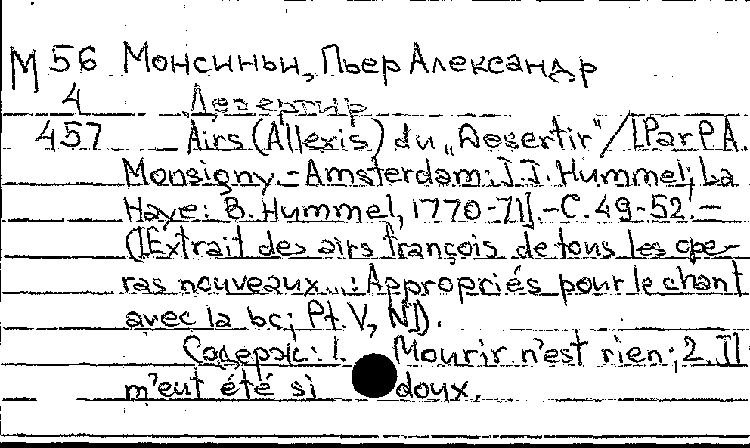 М 56 Монсиньи, Пьер Александр
4 Дезертир
457 Airs (Allexis) du „Desertir"/[Par P.A.
Monsigny.-Amsterdam: J.J. Hummel; La
Haye: B. Hummel, 1770-71].-С. 49-52.-
([Extrait des airs françois de tous les ope-
ras nouveaux...: Appropriés pour le chant
avec la bc; Pt. V, N]).
Содерж: 1. Mourir n'est rien; 2. Il
m'eut été si doux.